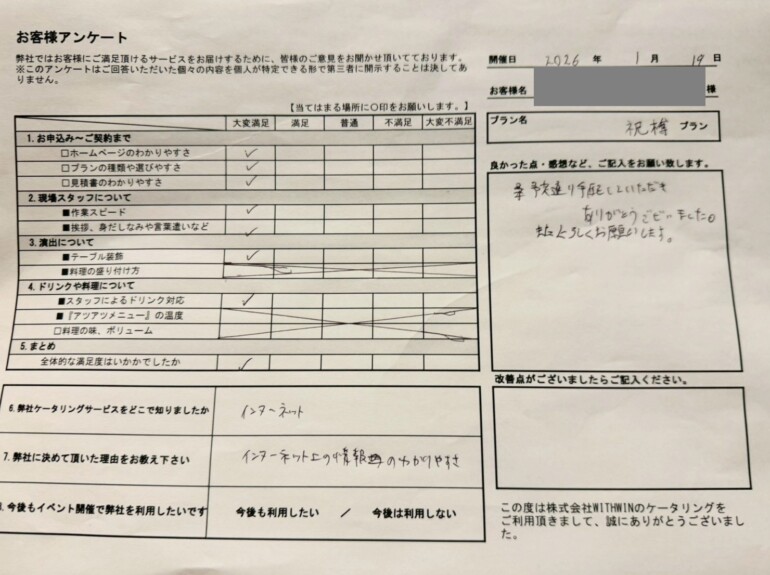 お客様アンケート
弊社ではお客様にご満足頂けるサービスをお届けするために、皆様のご意見をお聞かせ頂いております。
※このアンケートはご回答いただいた個々の内容を個人が特定できる形で第三者に開示することは決してあ
りません。
開催日 2026 年 1 月 19 日
お客様名 様
プラン名 祝樽 プラン
【当てはまる場所に○印をお願いします。】
大変満足 満足 普通 不満足 大変不満足
1. お申込み～ご契約まで
□ホームページのわかりやすさ ✓
□プランの種類や選びやすさ ✓
□見積書のわかりやすさ ✓
2. 現場スタッフについて
■作業スピード ✓
■挨拶、身だしなみや言葉遣いなど ✓
3. 演出について
■テーブル装飾 ✓
■料理の盛り付け方
4. ドリンクや料理について
■スタッフによるドリンク対応 ✓
■『アツアツメニュー』の温度
□料理の味、ボリューム
5. まとめ
全体的な満足度はいかかでしたか ✓
6. 弊社ケータリングサービスをどこで知りましたか インターネット
7. 弊社に決めて頂いた理由をお教え下さい インターネット上の情報のわかりやすさ
8. 今後もイベント開催で弊社を利用したいです 今後も利用したい / 今後は利用しない
良かった点・感想など、ご記入をお願い致します。
予定通り手配していただき
ありがとうございました。
よろしくお願いします。
改善点がございましたらご記入ください。
この度は株式会社WITHWINのケータリングを
ご利用頂きまして、誠にありがとうございまし
た。